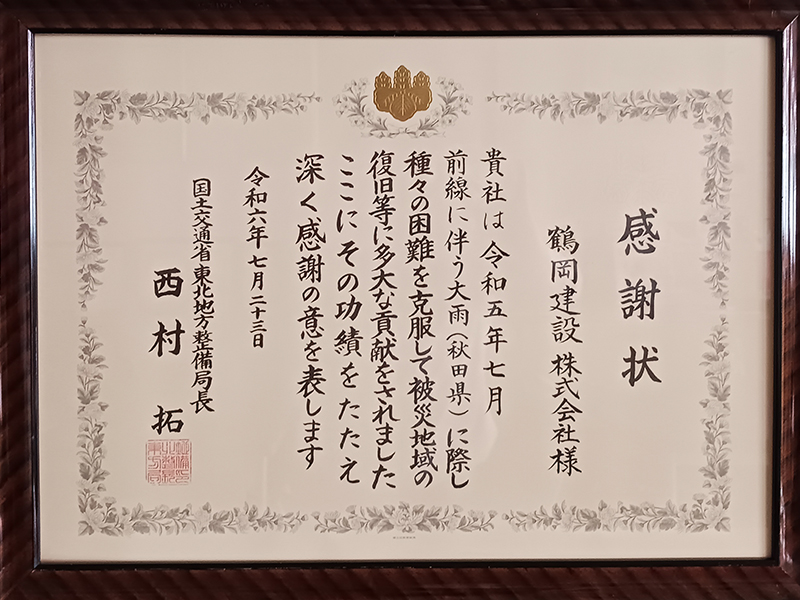 感謝状
鶴岡建設 株式会社様
貴社は 令和五年七月
前線に伴う大雨(秋田県)に際し
種々の困難を克服して被災地域の
復旧等に多大な貢献をされました
ここにその功績をたたえ
深く感謝の意を表します
令和六年 七月 二十三日
国土交通省 東北地方整備局長
西村 拓